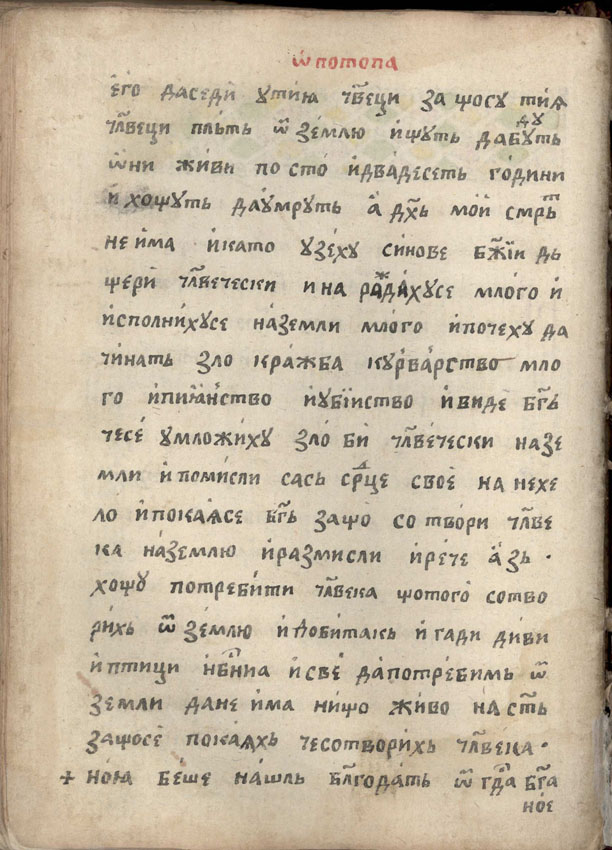 ѿ потопа
его да седи у тиꙗ чл҃веци защо су тиѧ
чл҃веци плъть ѿ землю и щуть да будуть
ѡни живи по сто и двадесеть години
и хощуть да умруть а дх҃ъ мой смрьт
не има и като узеху синове бж҃їи дъ
щери чл҃вечески и на раждахусе млого и
исполнихусе на земли млого и почеху да
чинать зло кражба курварство мло
го и пиꙗнство и убїиство и виде бг҃ъ
че се умложиху злоби чл҃вечески на зе
мли и помисли сась срд҃це свое на нехе
ло и покаꙗсе бг҃ъ защо сотвори чл҃ве
ка на землю и размисли и рече азъ ·
хощу потребити чл҃века що того сотво
рихъ ѿ землю и добитакь и гади диви
и птици нб҃ниа и све да потребимъ ѿ
земли да не има нищо живо на ст҃ъ
защо се покаꙗхъ че сотворихъ чл҃века ·
+ ноꙗ беше нашль бл҃годать ѿ гд҃а бг҃а
ное